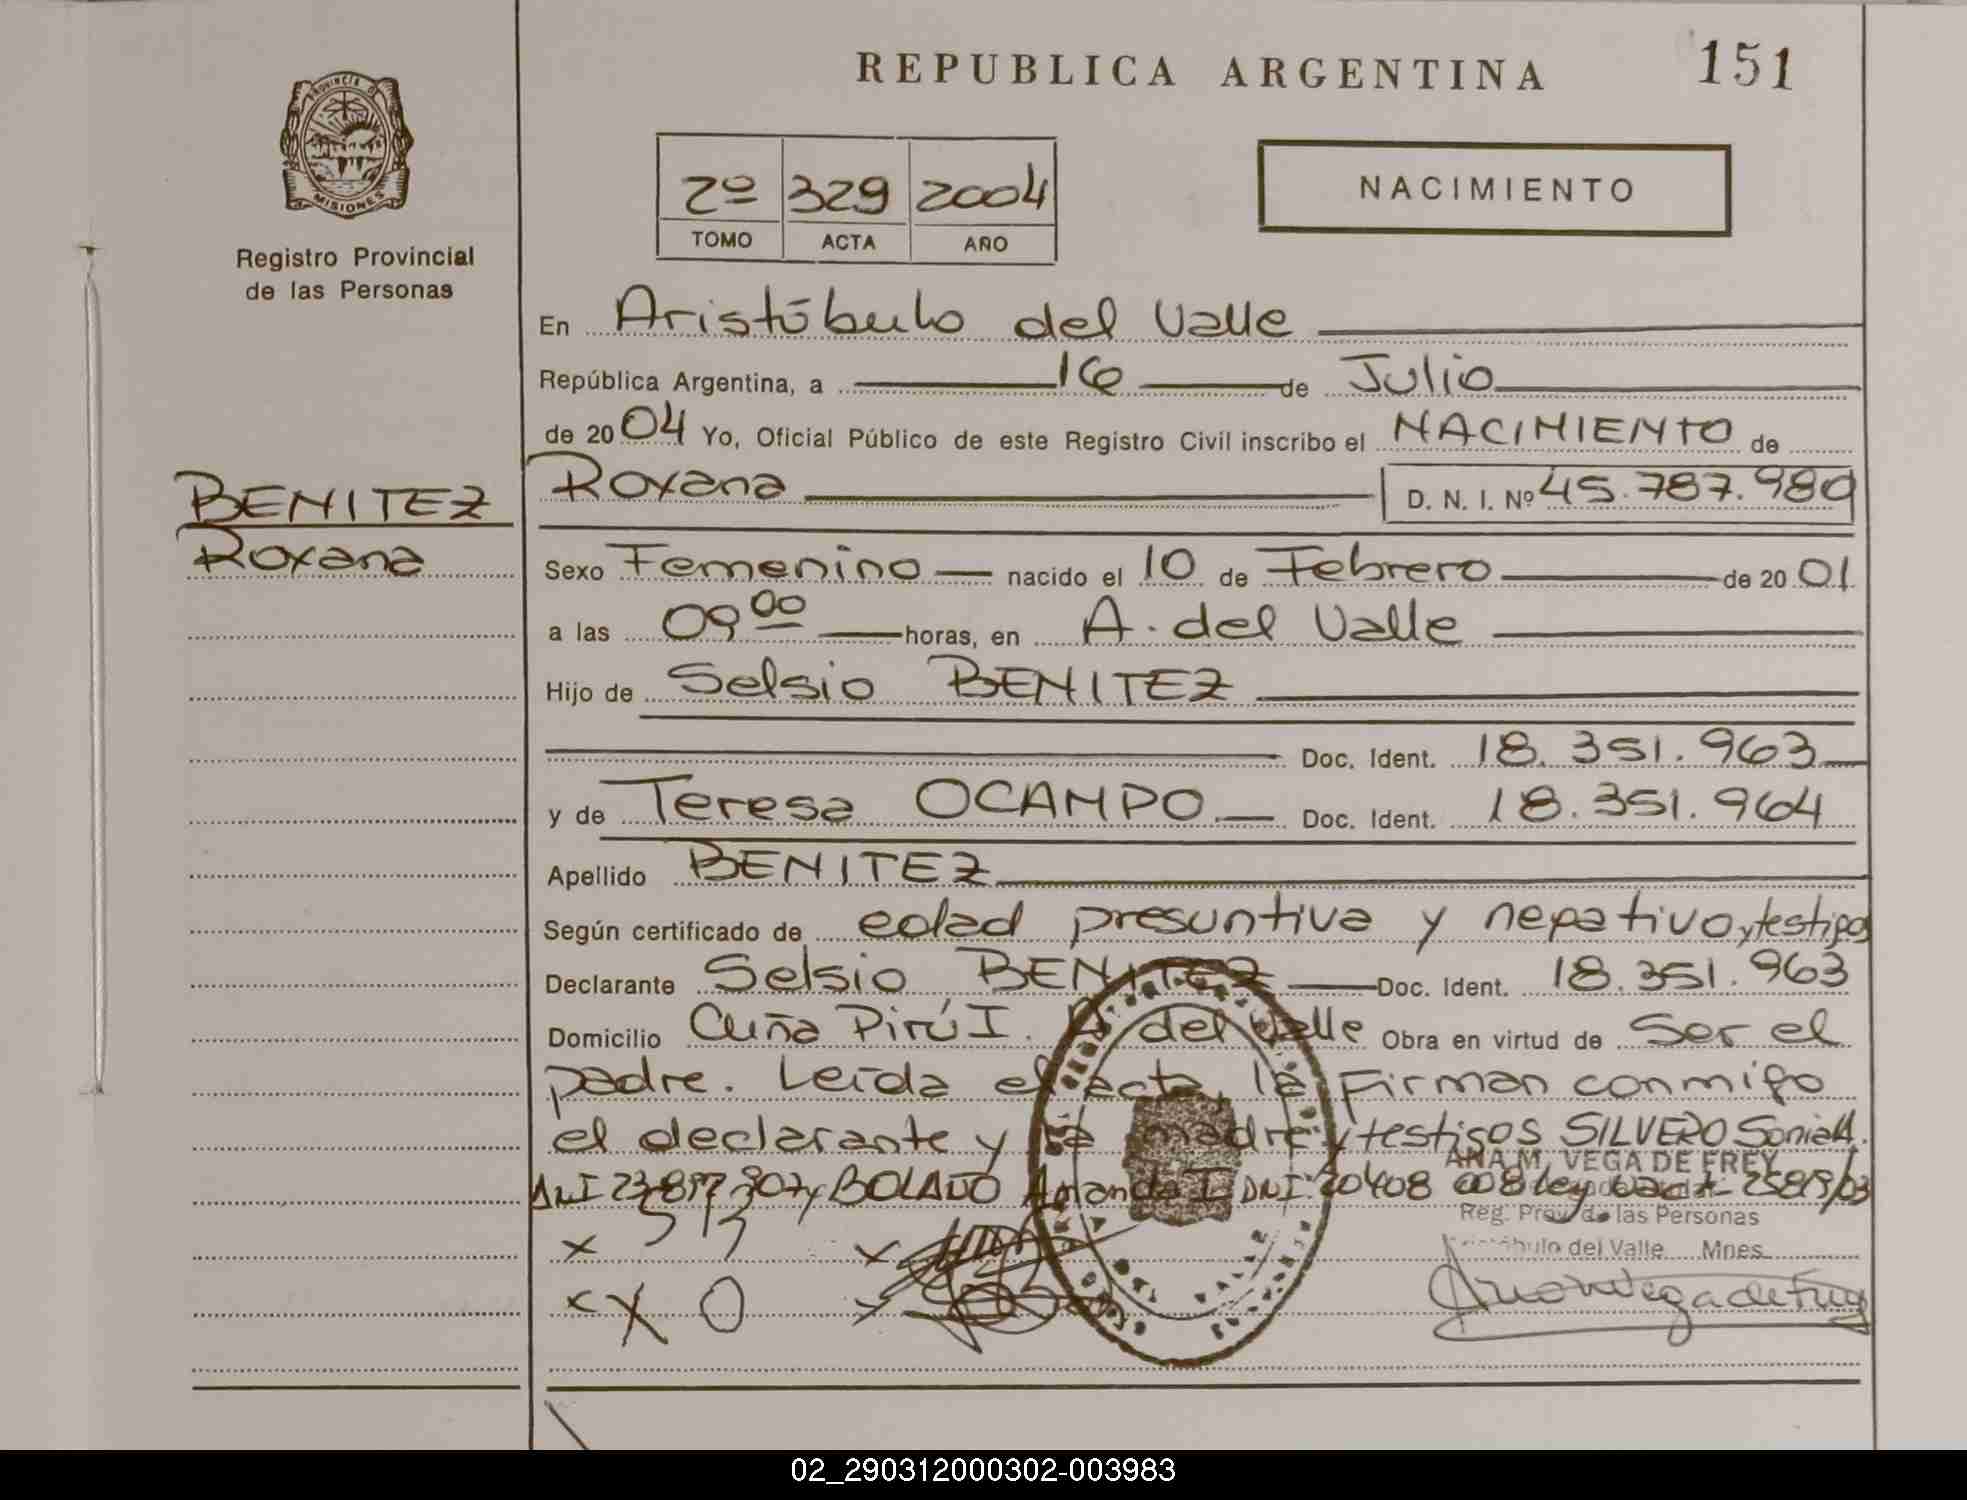 REPUBLICA ARGENTINA
151
PROVINCIA D
MISIONES
Registro Provincial
de las Personas
2º 329 2004
TOMO ACTA AÑO
NACIMIENTO
En Aristóbulo del Valle
República Argentina, a 16 de Julio
de 2004 Yo, Oficial Público de este Registro Civil inscribo el NACIMIENTO de
BENITEZ
Roxana
Roxana D. N. I. Nº 45.787.980
Sexo Femenino nacido el 10 de Febrero de 2001
a las 09 00 horas, en A. del Valle
Hijo de Selsio BENITEZ
Doc. Ident. 18.351.963
y de Teresa OCAMPO Doc. Ident. 18.351.964
Apellido BENITEZ
Según certificado de edad presuntiva y negativo y testigos
Declarante Selsio BENITEZ Doc. Ident. 18.351.963
Domicilio Cuña Pirú I. A. del Valle Obra en virtud de Ser el
padre. Leída el acta, la Firman conmigo
el declarante y la madre y testigos SILVERO Sonia A.
DNI y BOLAÑO Amanda I. DNI: 20408 008 ley
ANA M. VEGA DE FREY
Reg. Prov. de las Personas
del Valle Mnes.
x x
x X O x
02_290312000302-003983